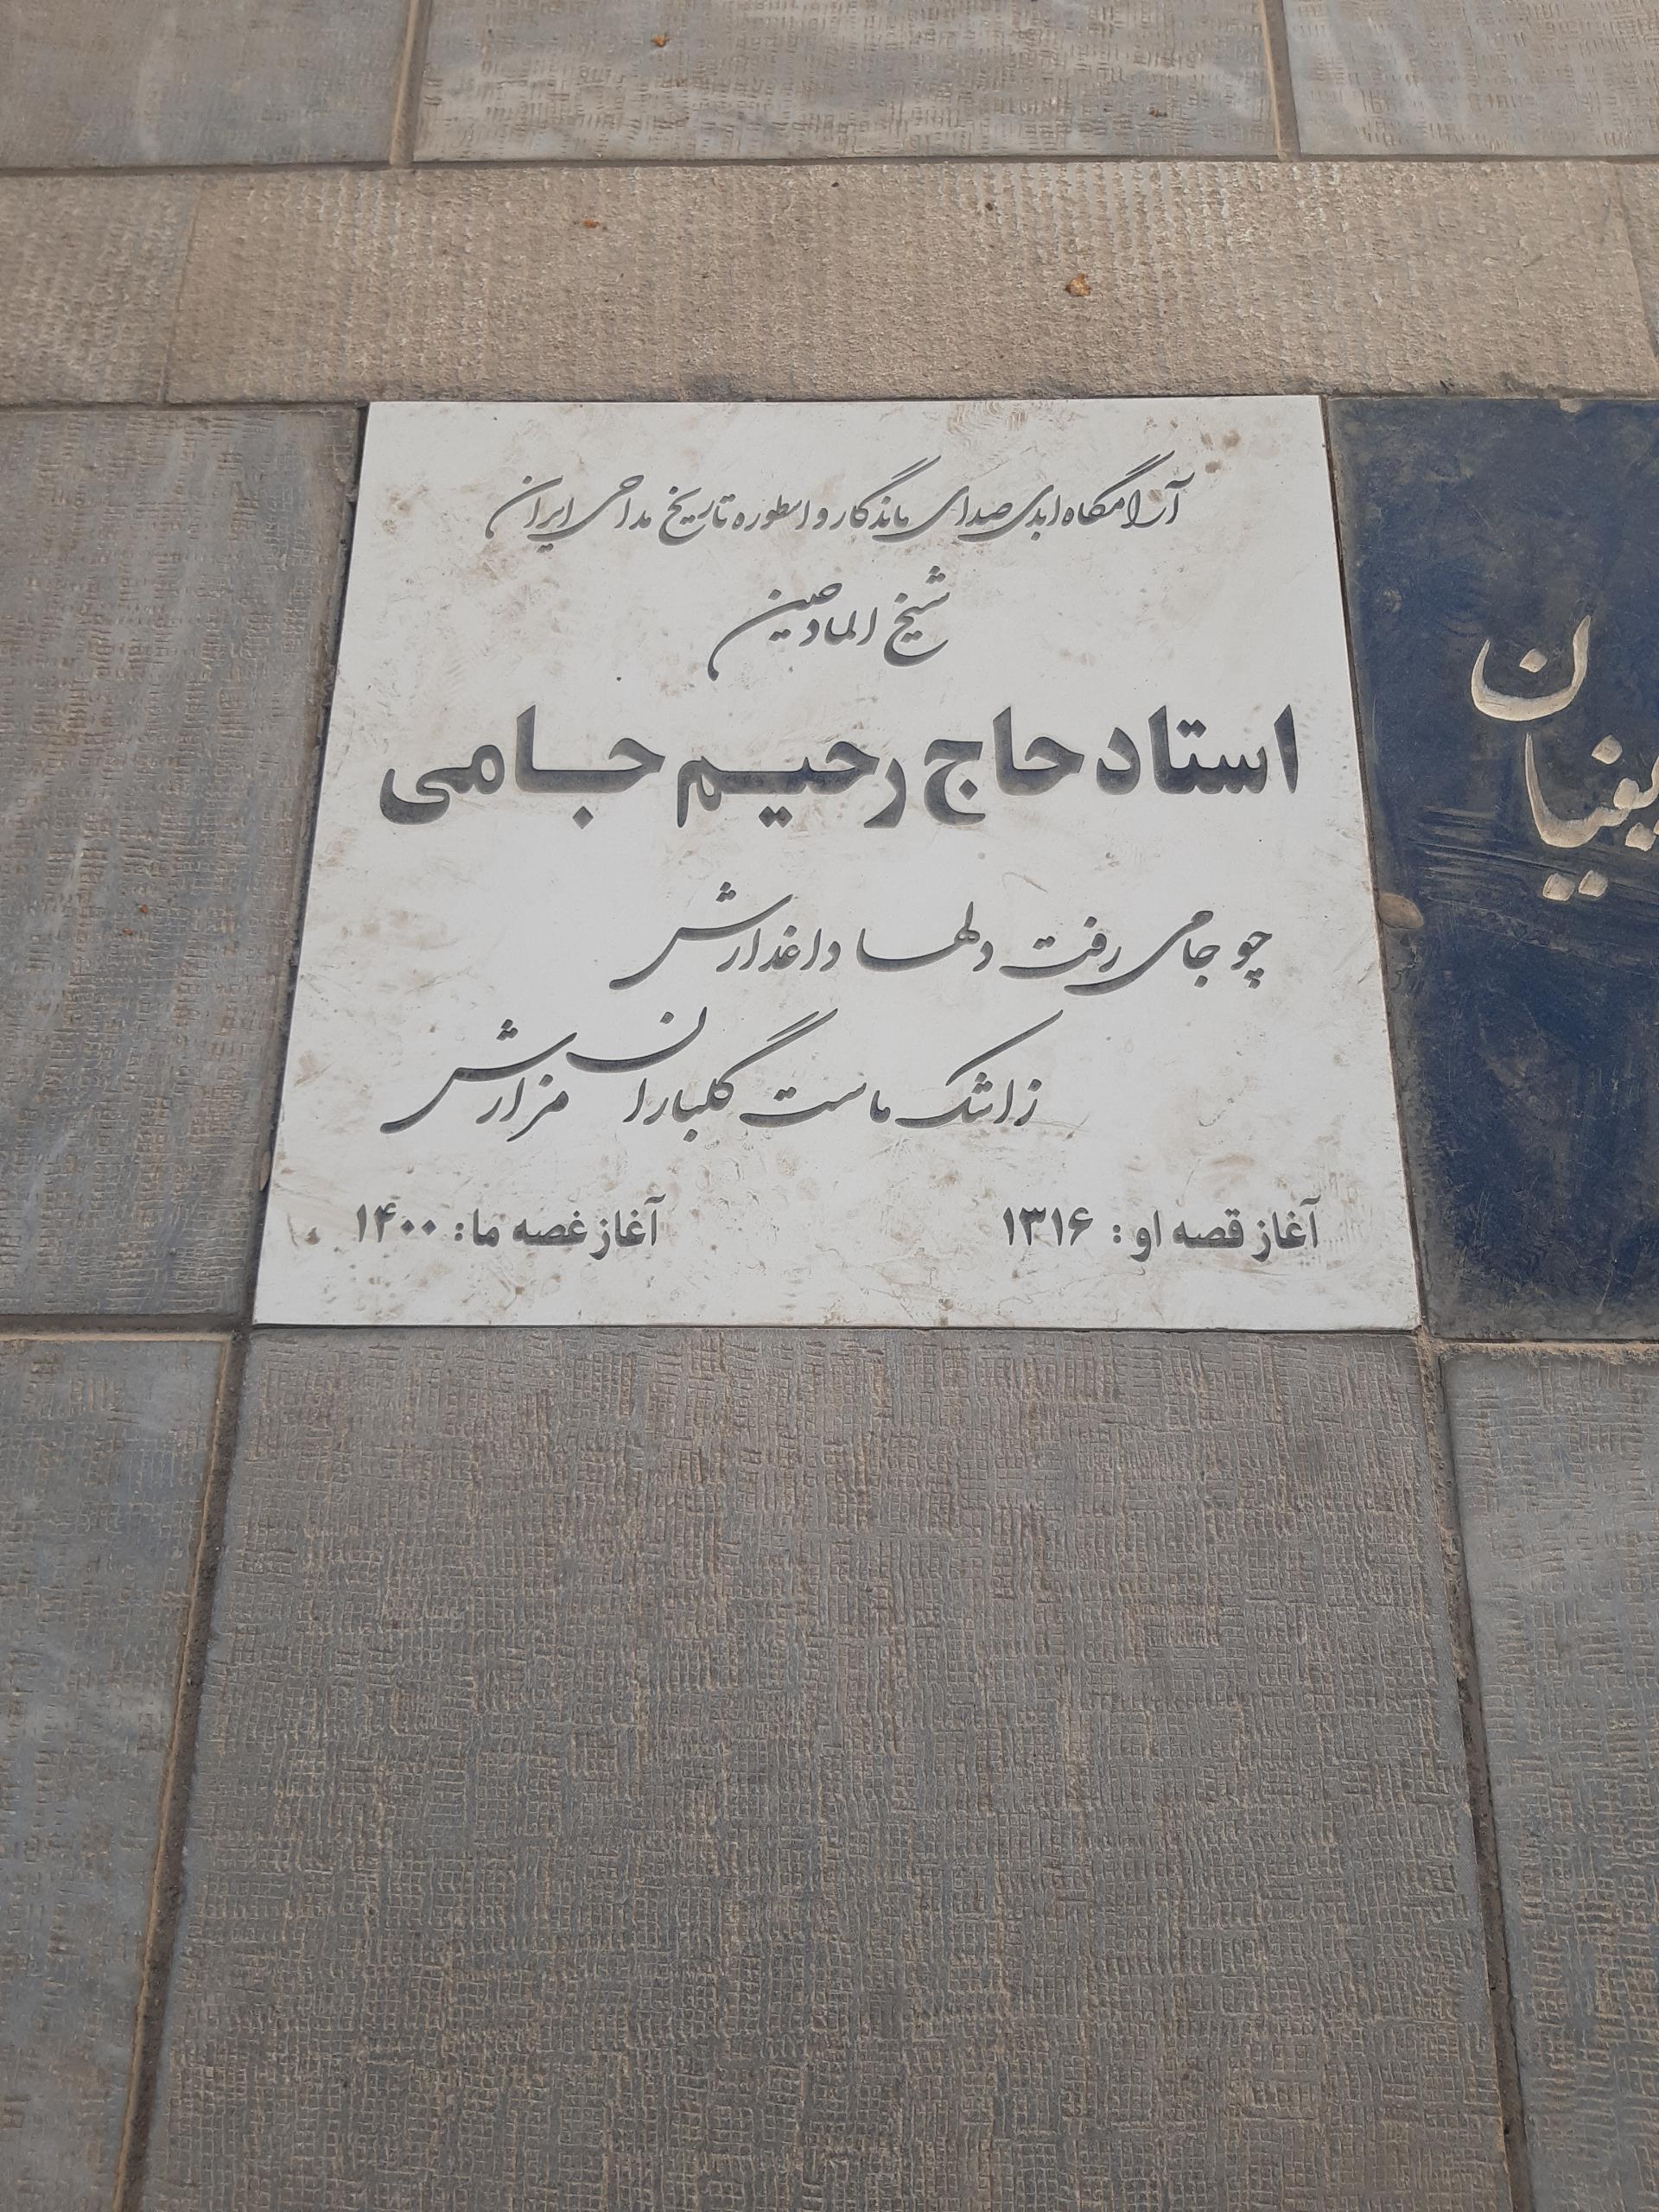 آرامگاه ابدی صدای ماندگار و اسطوره تاریخ مداحی ایران
شیخ المادحین
استاد حاج رحیم جامی
چو جامی رفت دلها داغدارش
ز اشک ماست گلباران مزارش
آغاز قصه او : ۱۳۱۶
آغاز غصه ما: ۱۴۰۰